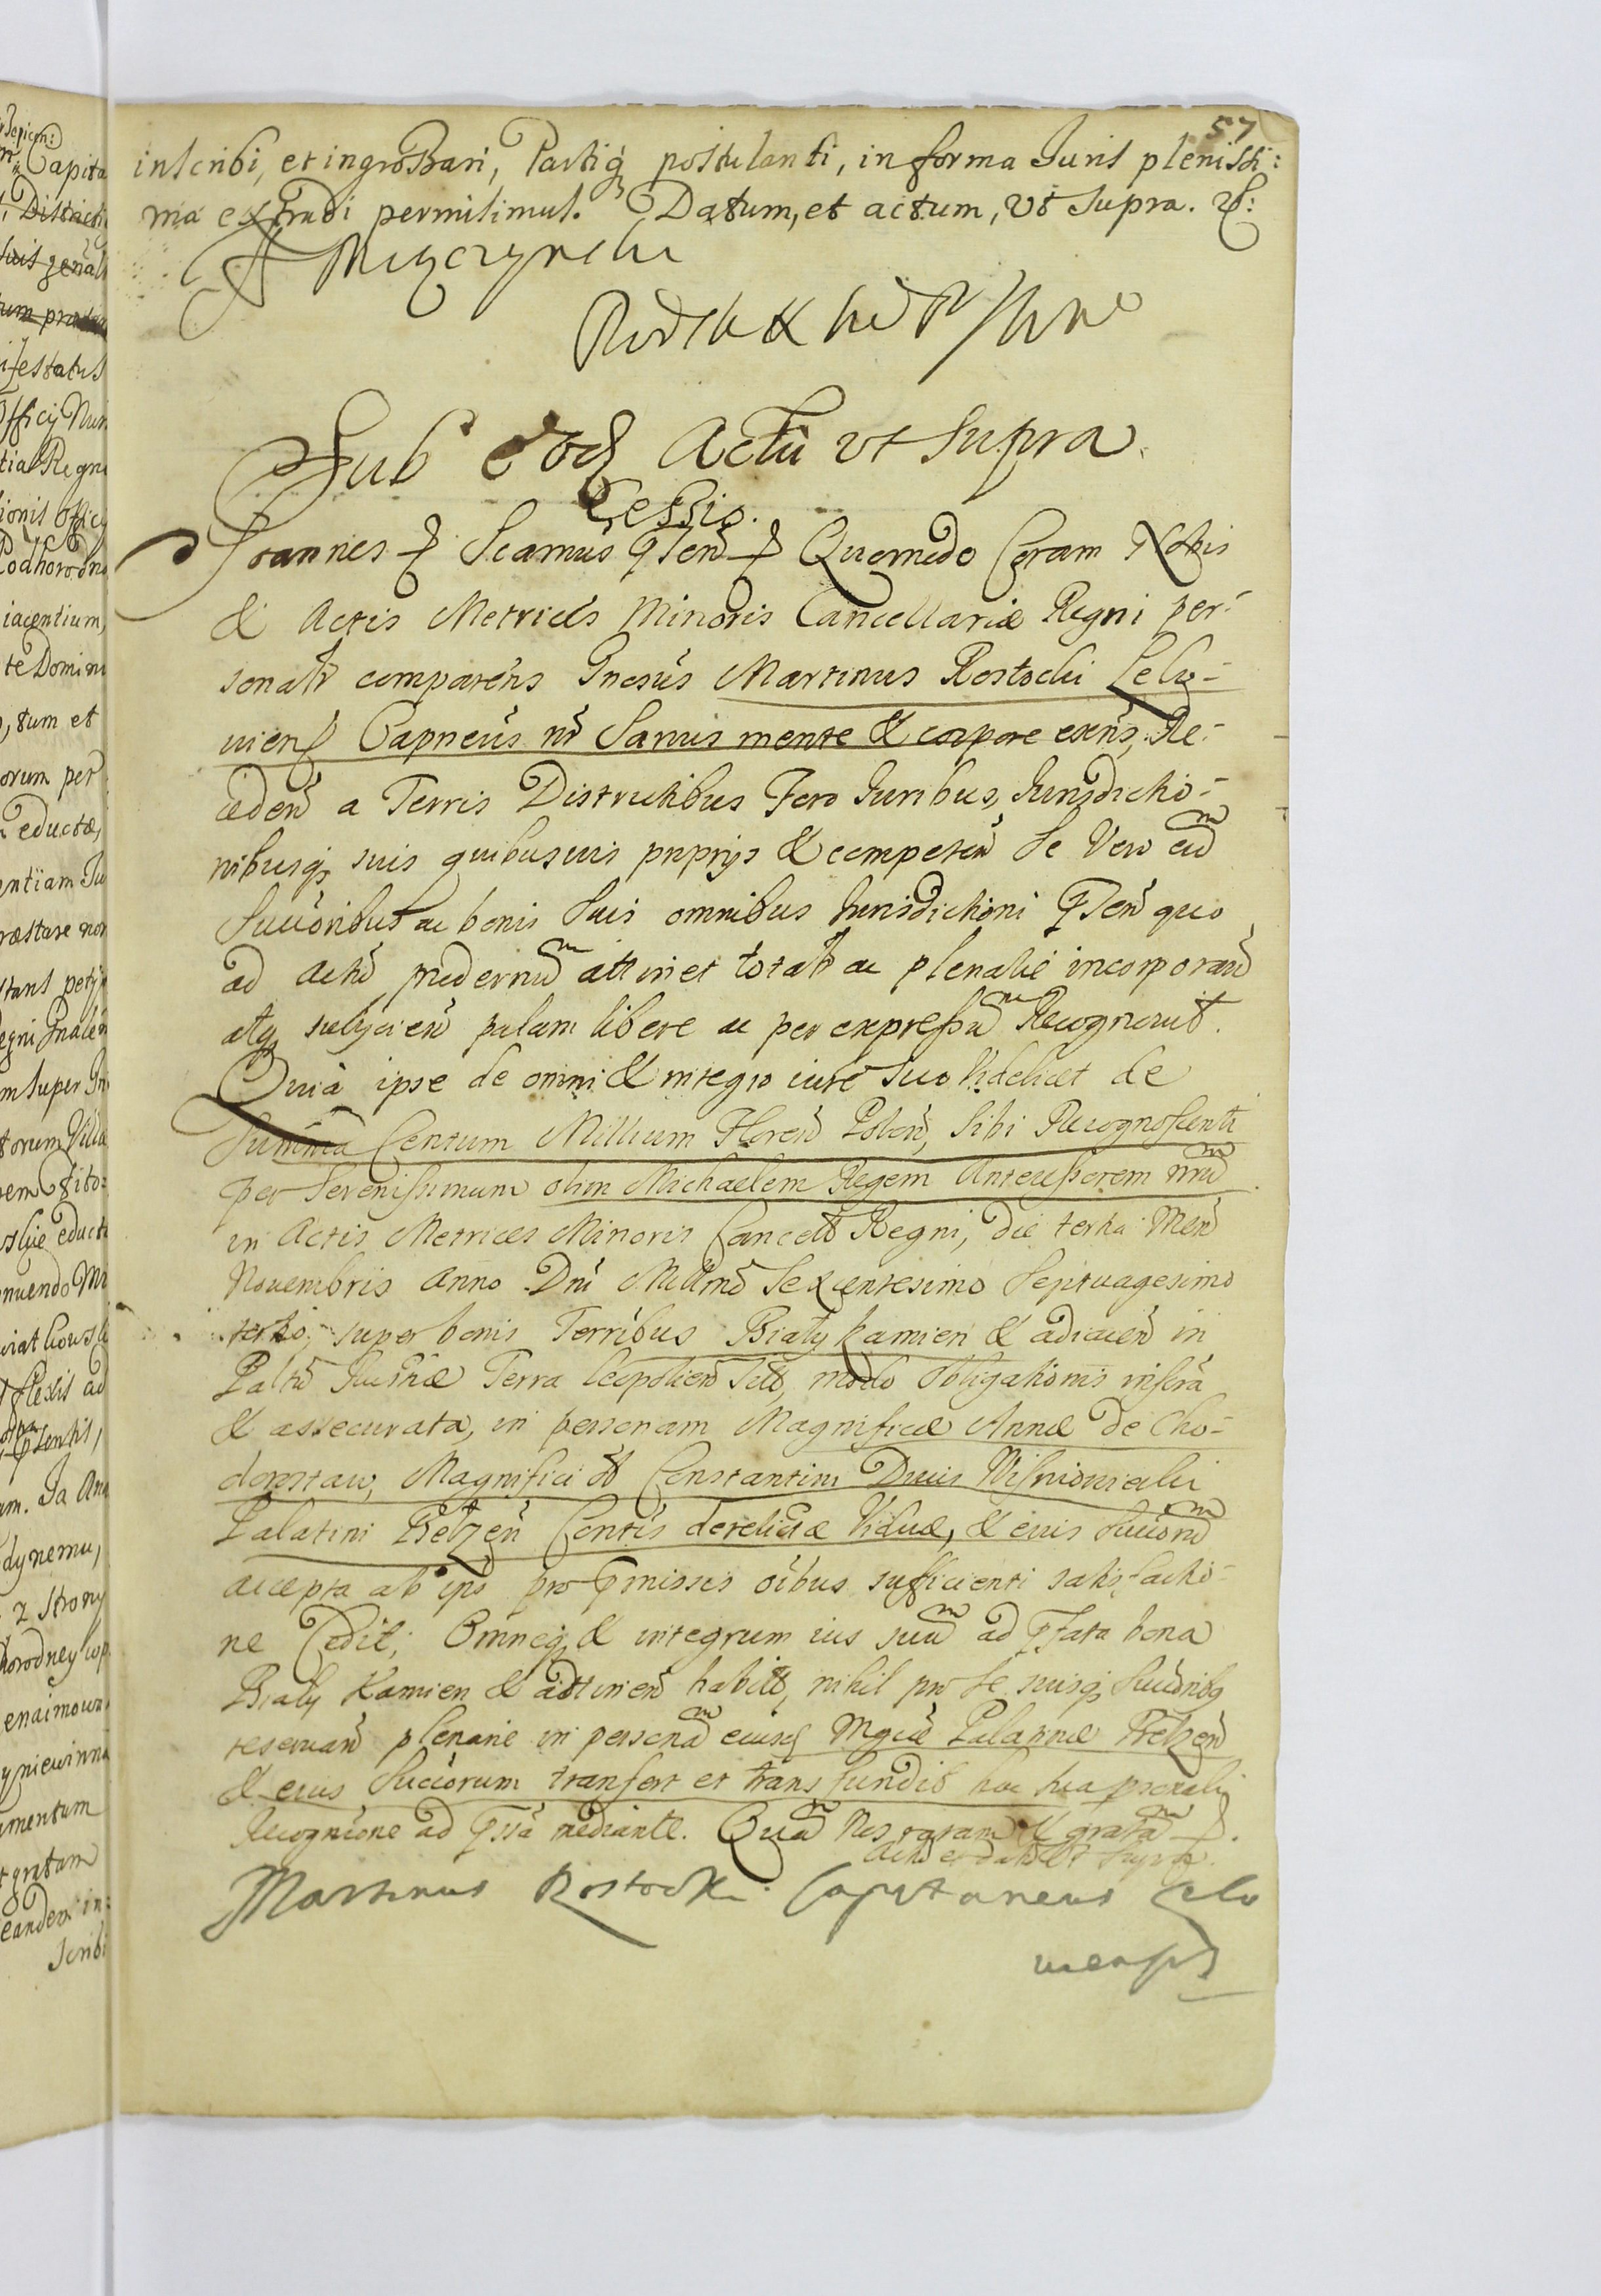 57
inscribi, et ingrossari, Partiq́ postulanti, in forma Juris plenissi:
ma extradi permisimus. Datum, et actum, vt supra.
Sub eod Actu vt supra.
Cessio.
Joannes Scamus Quomodo Coram Nobis
& Actis Metrices Minoris Cancellariæ Regni per-
sonalr comparens Gnosus Martinus Rostocki Lelo-
uiens Capneus nr Sanus mente & corpore exens, Re-
ceden a Terris Districtibus Foro Juribus, Jurisdictio-
nibusq suis quibusuis proprys & competen Se Vero eum
Succoribus ac bonis Suis omnibus Jurisdictioni pnten quo
ad actu modernum attinet totalr ac plenarie incorporan
atq subycien palam libere ac per expressum Recognouit.
Quia ipse de omni & integro iure suo Videlicet de
Summa Centum Millium Floren Polon, Sibi Recognoscenti
per Serenissimum olim Michaelem Regem Antecessorem nrum
in Actis Metrices Minoris Cancell Regni, die tertia Men
Nouembris Anno Dni Millmo Sexcentesimo Septuagesimo
tertio, super bonis Terribus Biały kamien & adiacen in
Paltu Russiæ Terra Leopolien modo Obligationis inscra
& assecurata, in personam Magnificæ Annæ de Cho-
dorostaw, Magnifici Constantini Ducis Wisniowiecki
Palatini Belzen Contis derelictæ Viduæ, & eius Succorum
accepta ab ipso pro pmissis oibus sufficienti satisfactio-
ne Cedit; Omneq & integrum ius suum ad pfata bona
Biały Kamien & attinen habit, nihil pro se suisq Succoribq
reseruan plenarie in personam eiusd Mgcæ Palatinæ Belzen
& eius Succorum transfert et transfundit hac sua
Recognicione ad mediante. Quam Nos ratam & gratam
Actu et datu vt supra.
Martinus Rostocki Capitaneus Lelo
uiensis